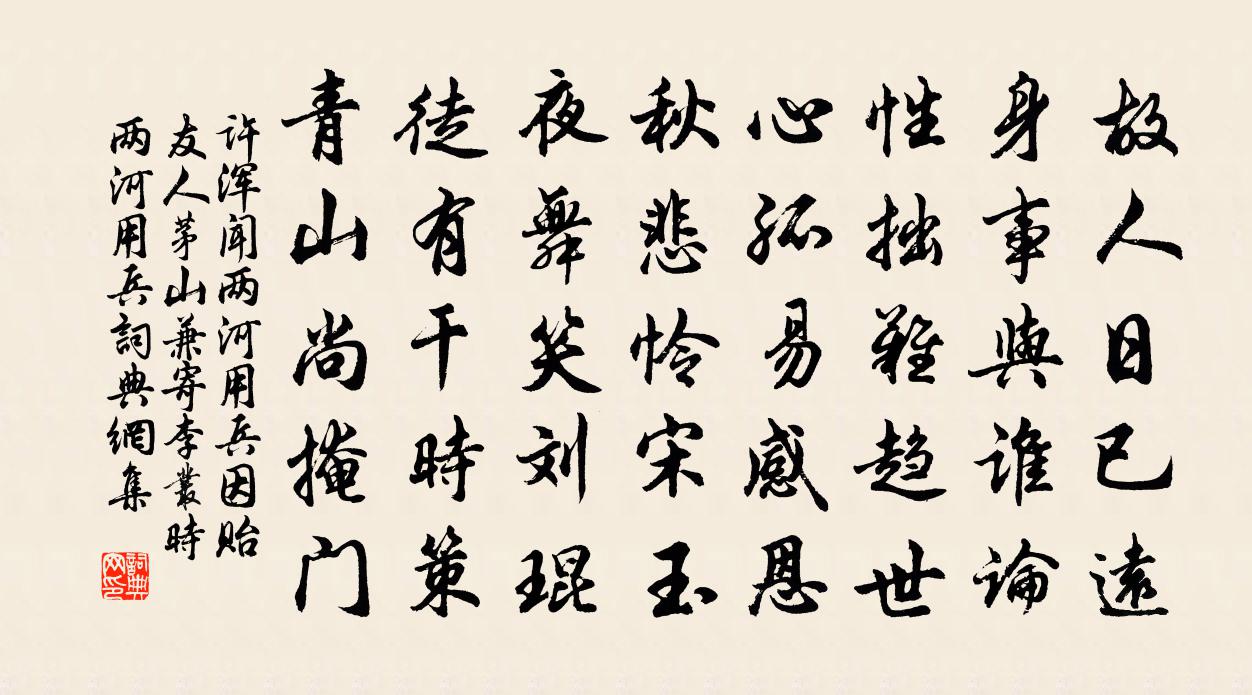 故人日已遠
身事與誰論
性拙難趨世
心孤易感恩
秋悲怜宋玉
夜舞笑刘琨
徒有干時策
青山尚掩门
许浑闻两河用兵因贻
友人茅山兼寄李叢時
两河用兵詞典網集
詞典
网印